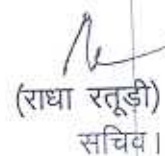 (राधा रतूडी)
सचिव।